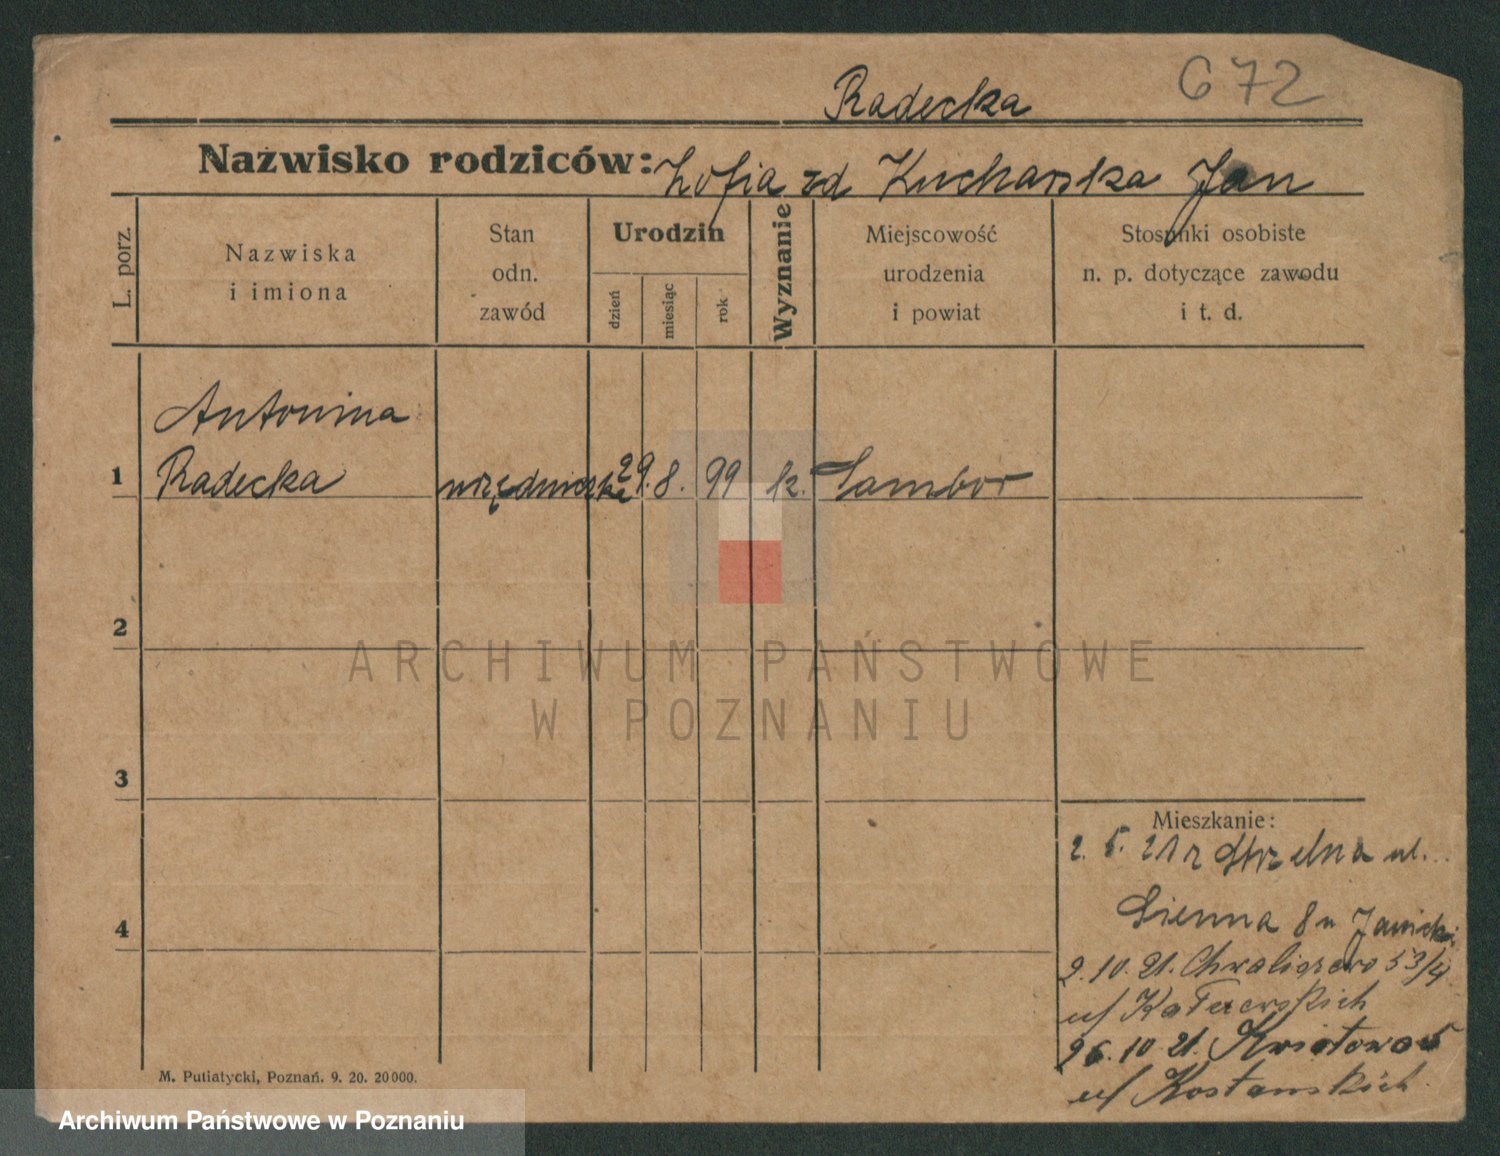 672
Radecka
Nazwisko rodziców: Zofia zd Kucharska Jan
L. porz.
Nazwiska
i imiona
Stan
odn.
zawód
Urodzin
dzień
miesiąc
rok
Wyznanie
Miejscowość
urodzenia
i powiat
Stosunki osobiste
n. p. dotyczące zawodu
i t. d.
Antonina
1 Radecka urzędniczka 29. 8. 99 k. Sambor
2
3
4
Mieszkanie:
2. 5. 21 z Strzelna ul.
Sienna 8 u Janicki
2. 10. 21. Chwaliszewo 53/4
u/
26. 10 21. Kwiatowa 5
u/ Kostanskich
M. Putiatycki, Poznań. 9. 20. 20000.
ARCHIWUM PAŃSTWOWE
W POZNANIU
Archiwum Państwowe w Poznaniu